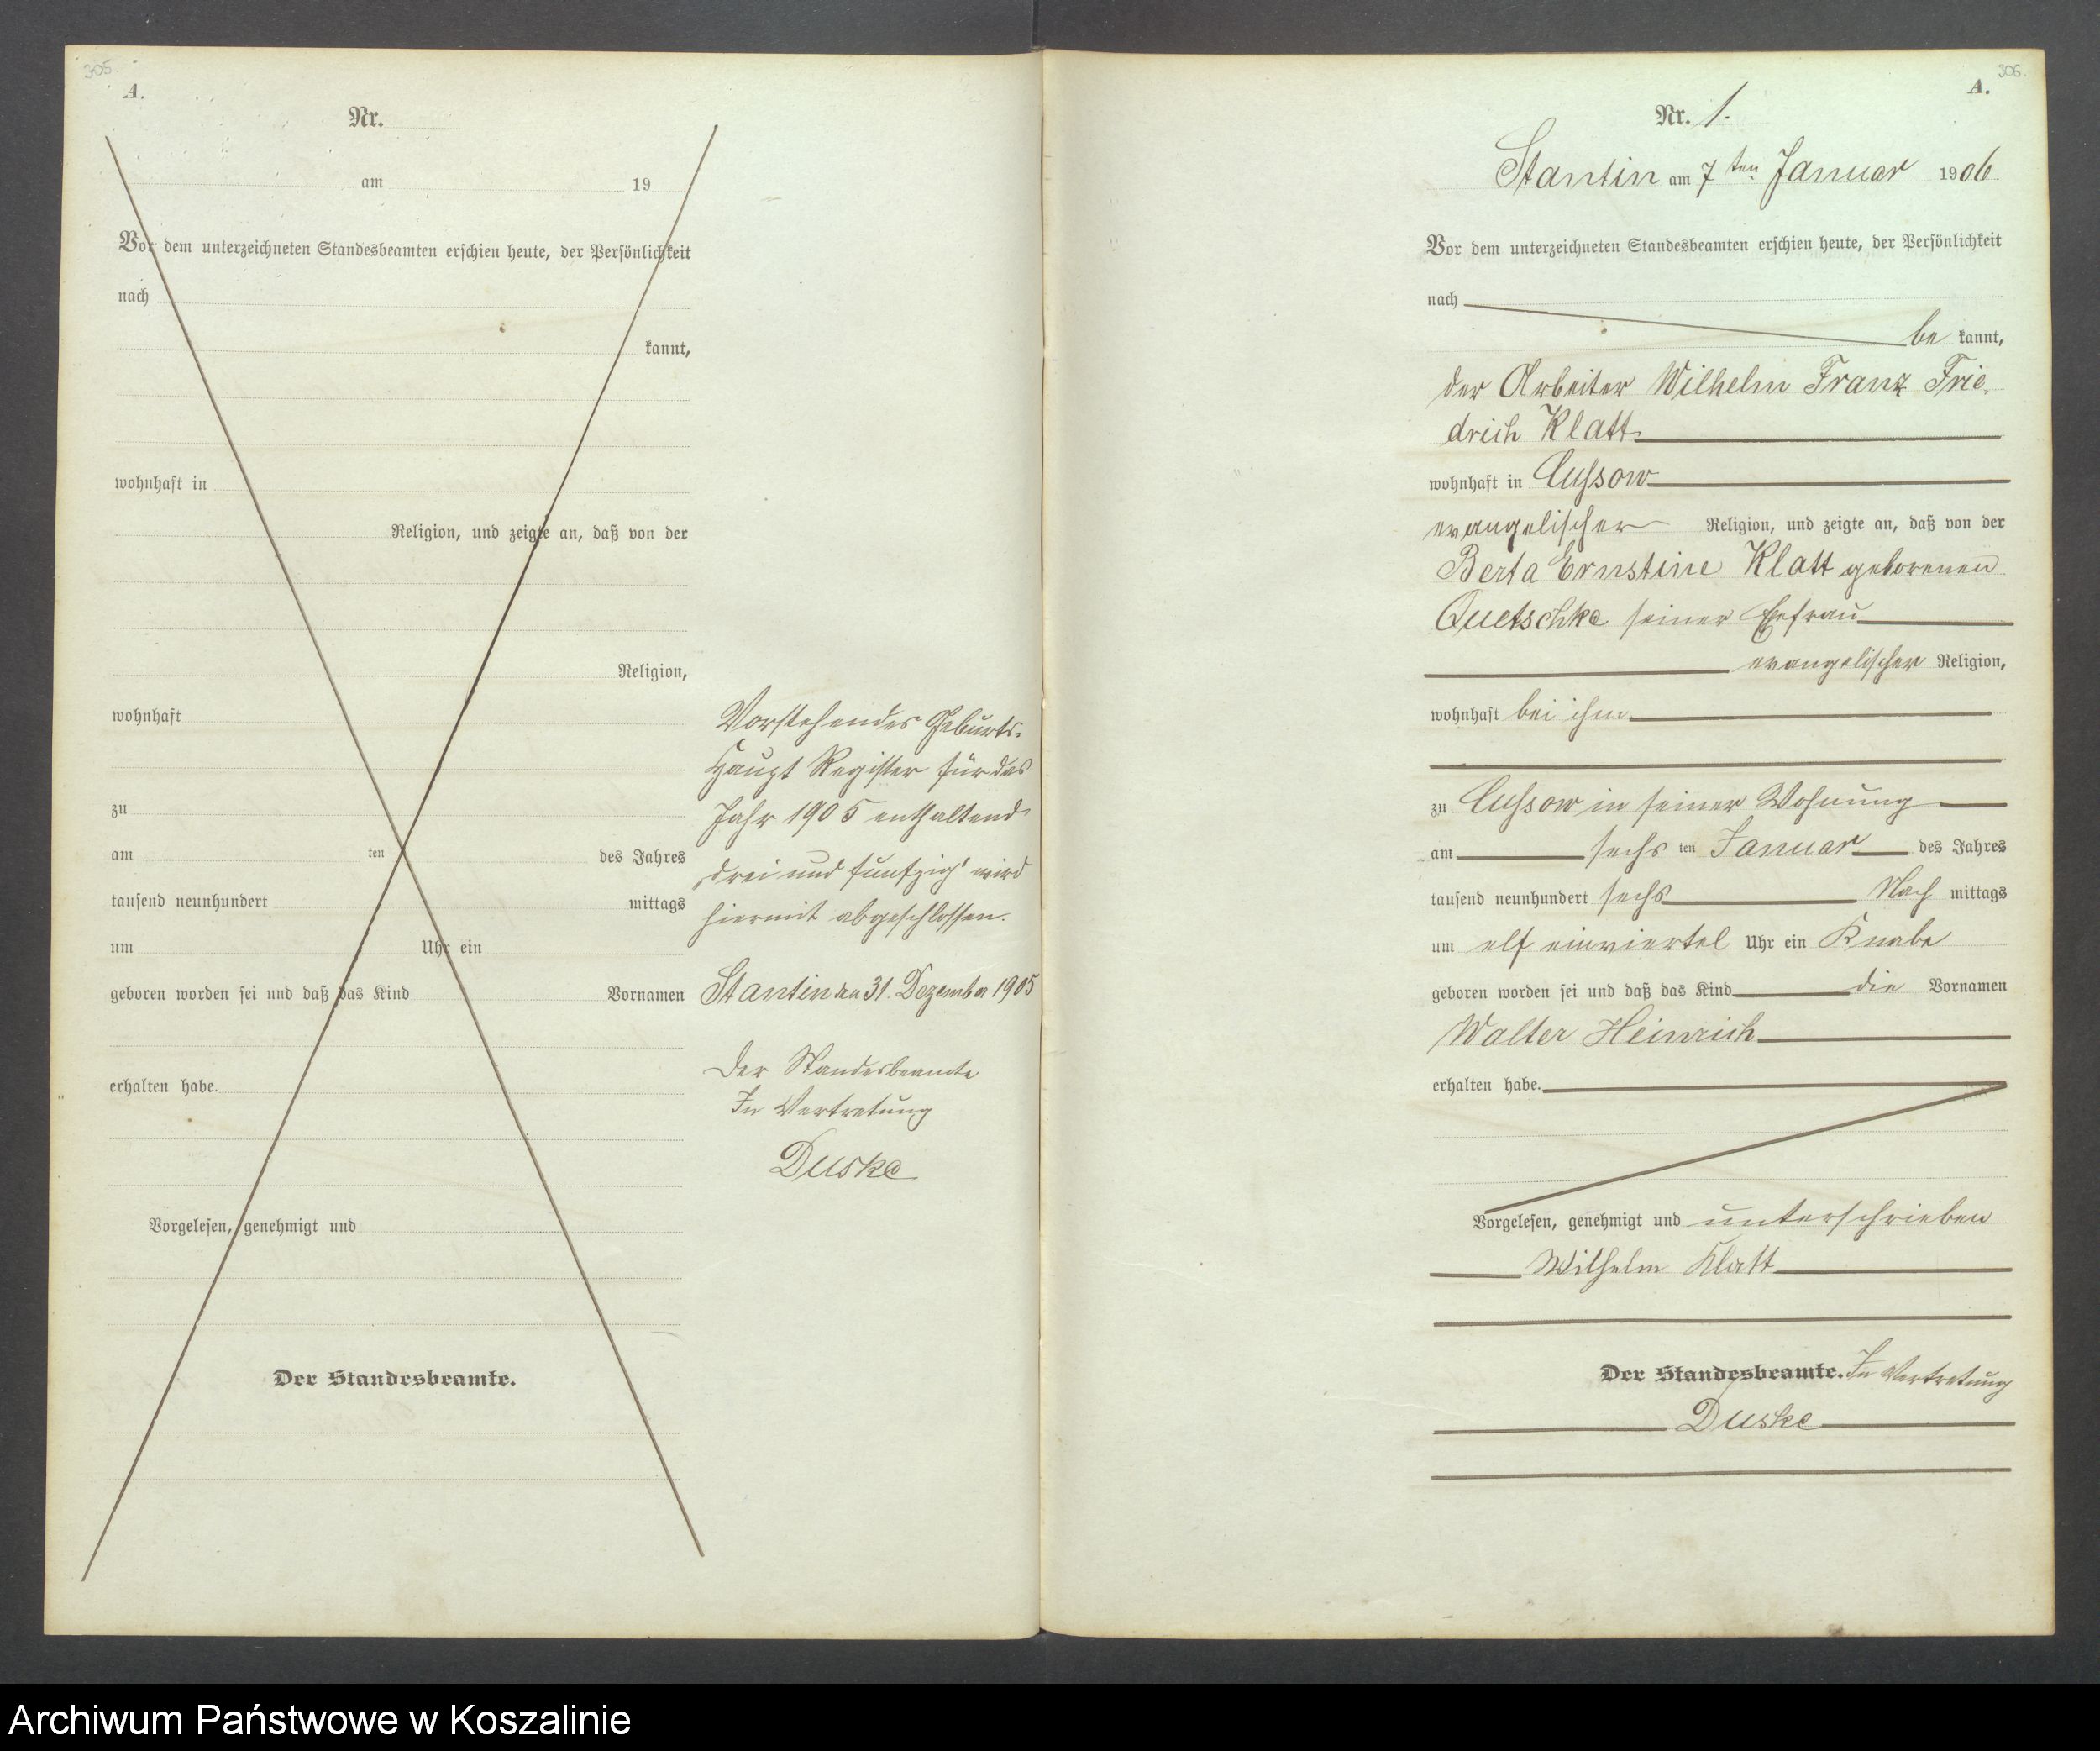 305.
A.
Nr.
am 19
Vor dem unterzeichneten Standesbeamten erschien heute, der Persönlichkeit
nach
kannt,
wohnhaft in
Religion, und zeigte an, daß von der
Religion,
wohnhaft
zu
am ten des Jahres
tausend neunhundert mittags
um Uhr ein
geboren worden sei und daß das Kind Vornamen
erhalten habe.
Vorgelesen, genehmigt und
Der Standesbeamte.
Vorstehendes Geburts-
Haupt Register für das
Jahr 1905 enthaltend
"drei und funfzig" wird
hiermit abgeschlossen.
Stantin den 31. Dezember 1905
Der Standesbeamte
In Vertretung
Duske
306.
A.
Nr. 1.
Stantin am 7 ten Januar 1906
Vor dem unterzeichneten Standesbeamten erschien heute, der Persönlichkeit
nach
be kannt,
der Arbeiter Wilhelm Franz Frie-
drich Klatt
wohnhaft in Cussow
evangelischer Religion, und zeigte an, daß von der
Berta Ernstine Klatt geborenen
Quetschke seiner Ehefrau
evangelischer Religion,
wohnhaft bei ihm
zu Cussow in seiner Wohnung
am sechs ten Januar des Jahres
tausend neunhundert sechs Nach mittags
um elf einviertel Uhr ein Knabe
geboren worden sei und daß das Kind die Vornamen
Walter Heinrich
erhalten habe.
Vorgelesen, genehmigt und unterschrieben
Wilhelm Klatt
Der Standesbeamte. In Vertretung
Duske
Archiwum Państwowe w Koszalinie